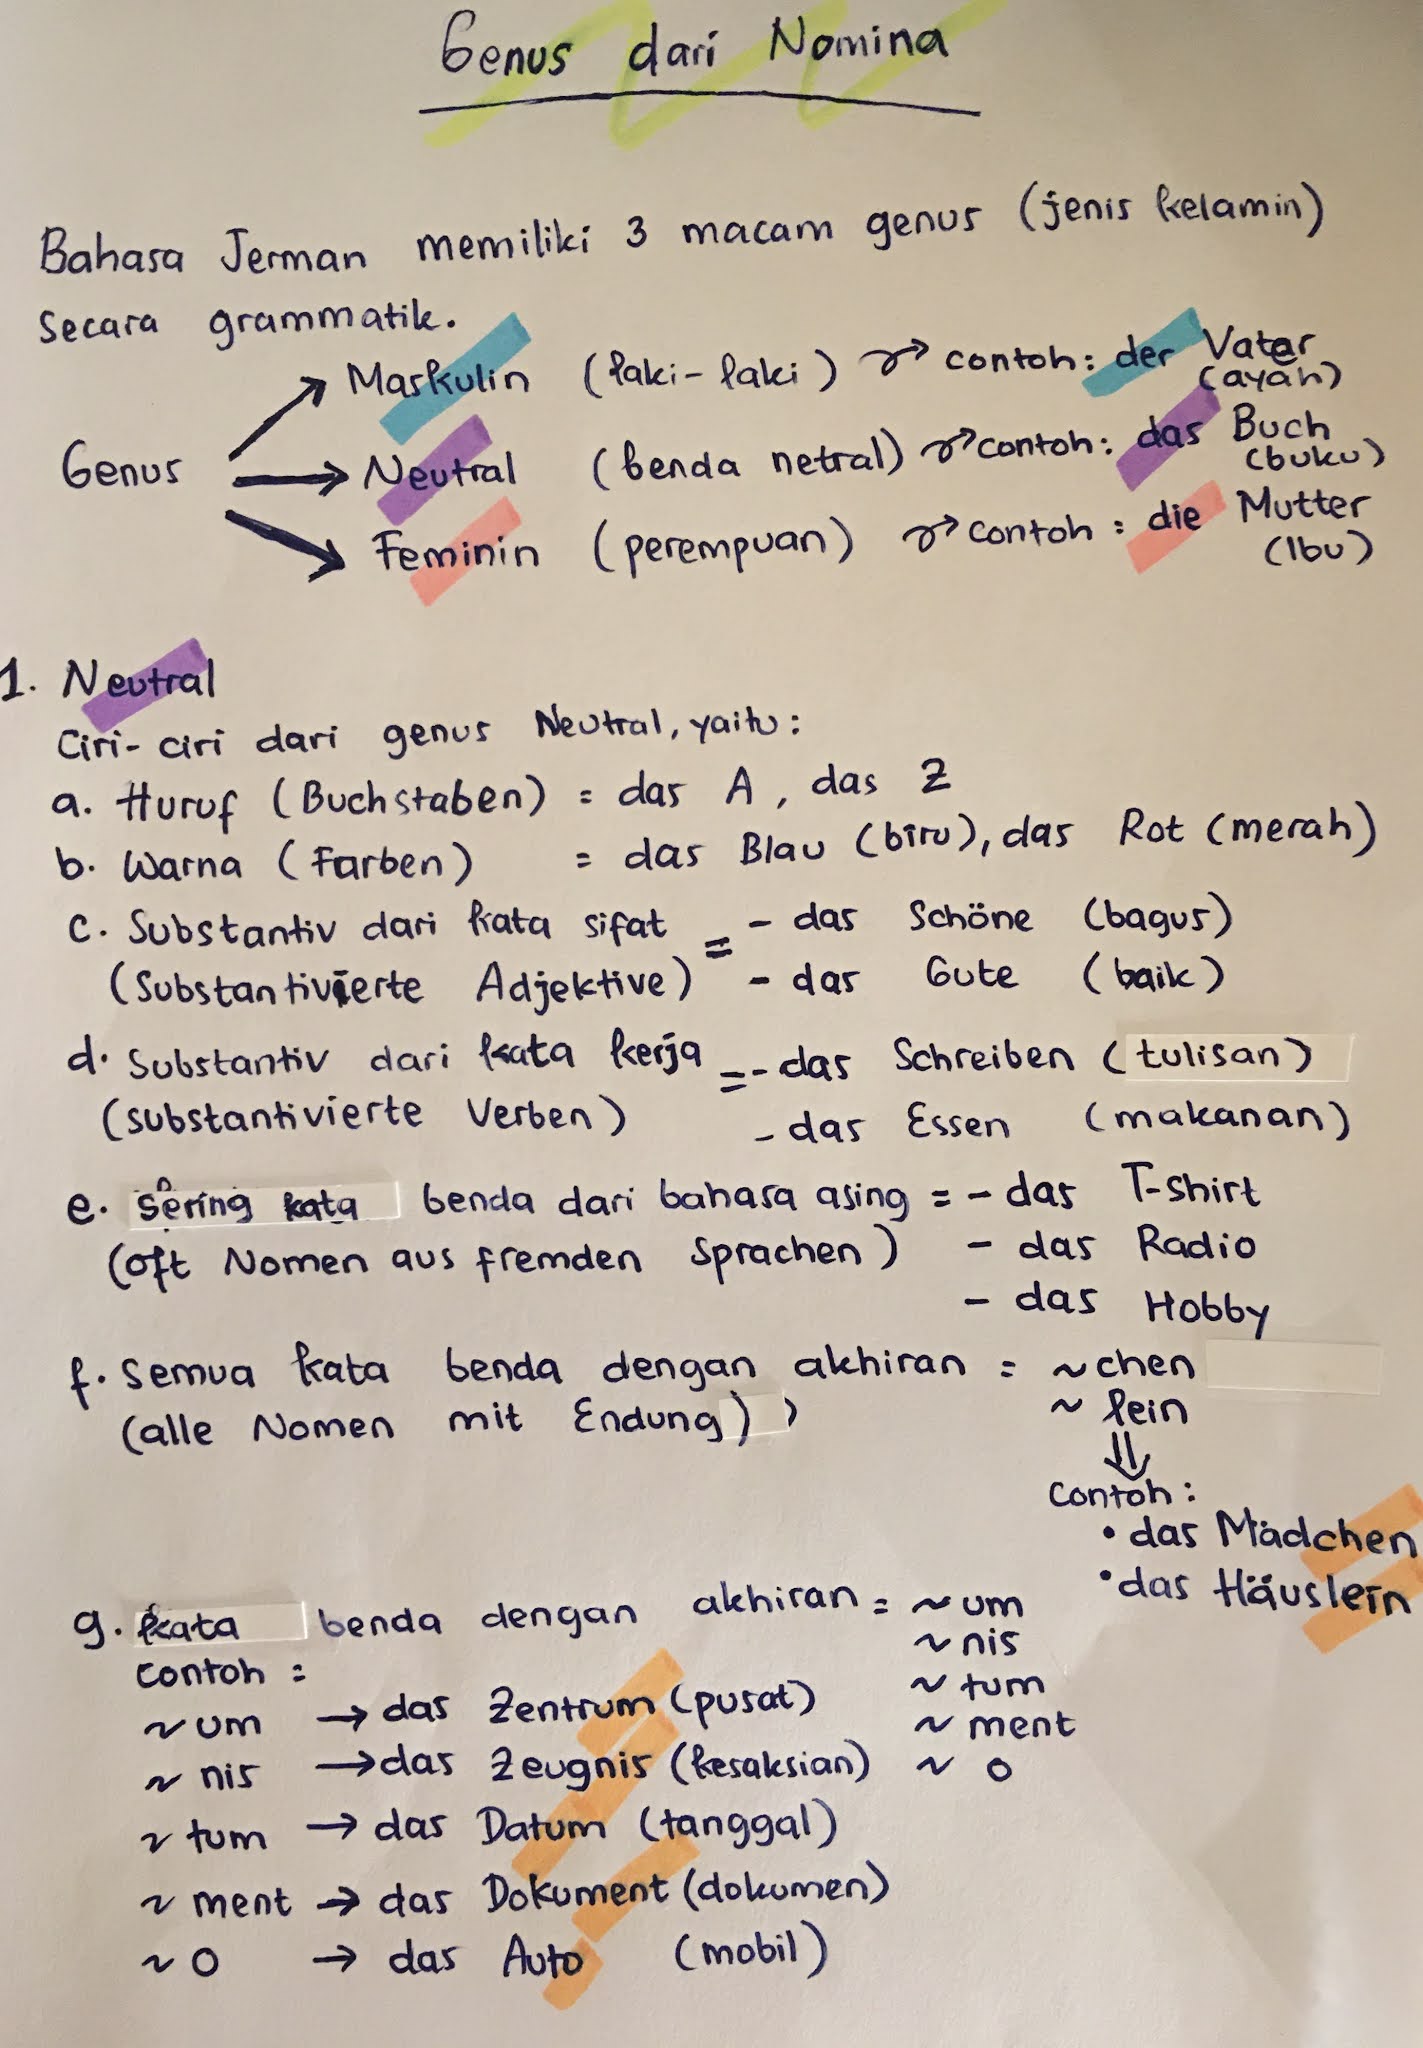 Genus dari Nomina
Bahasa Jerman memiliki 3 macam genus (jenis kelamin)
secara grammatik.
Genus
Maskulin (laki-laki) contoh: der Vater (ayah)
Neutral (benda netral) contoh: das Buch (buku)
Feminin (perempuan) contoh: die Mutter (Ibu)
1. Neutral
Ciri-ciri dari genus Neutral, yaitu:
a. Huruf (Buchstaben) = das A, das Z
b. Warna (Farben) = das Blau (biru), das Rot (merah)
c. Substantiv dari kata sifat = - das Schöne (bagus)
(Substantivierte Adjektive) - das Gute (baik)
d. Substantiv dari kata kerja = - das Schreiben (tulisan)
(substantivierte Verben) - das Essen (makanan)
e. sering kata benda dari bahasa asing = - das T-Shirt
(oft Nomen aus fremden Sprachen) - das Radio
- das Hobby
f. Semua kata benda dengan akhiran = ~ chen
(alle Nomen mit Endung) ~ lein
⇓
Contoh:
• das Mädchen
• das Häuslein
g. kata benda dengan akhiran = ~ um
~ nis
~ tum
~ ment
~ o
contoh =
~ um → das Zentrum (pusat)
~ nis → das Zeugnis (kesaksian)
~ tum → das Datum (tanggal)
~ ment → das Dokument (dokumen)
~ o → das Auto (mobil)